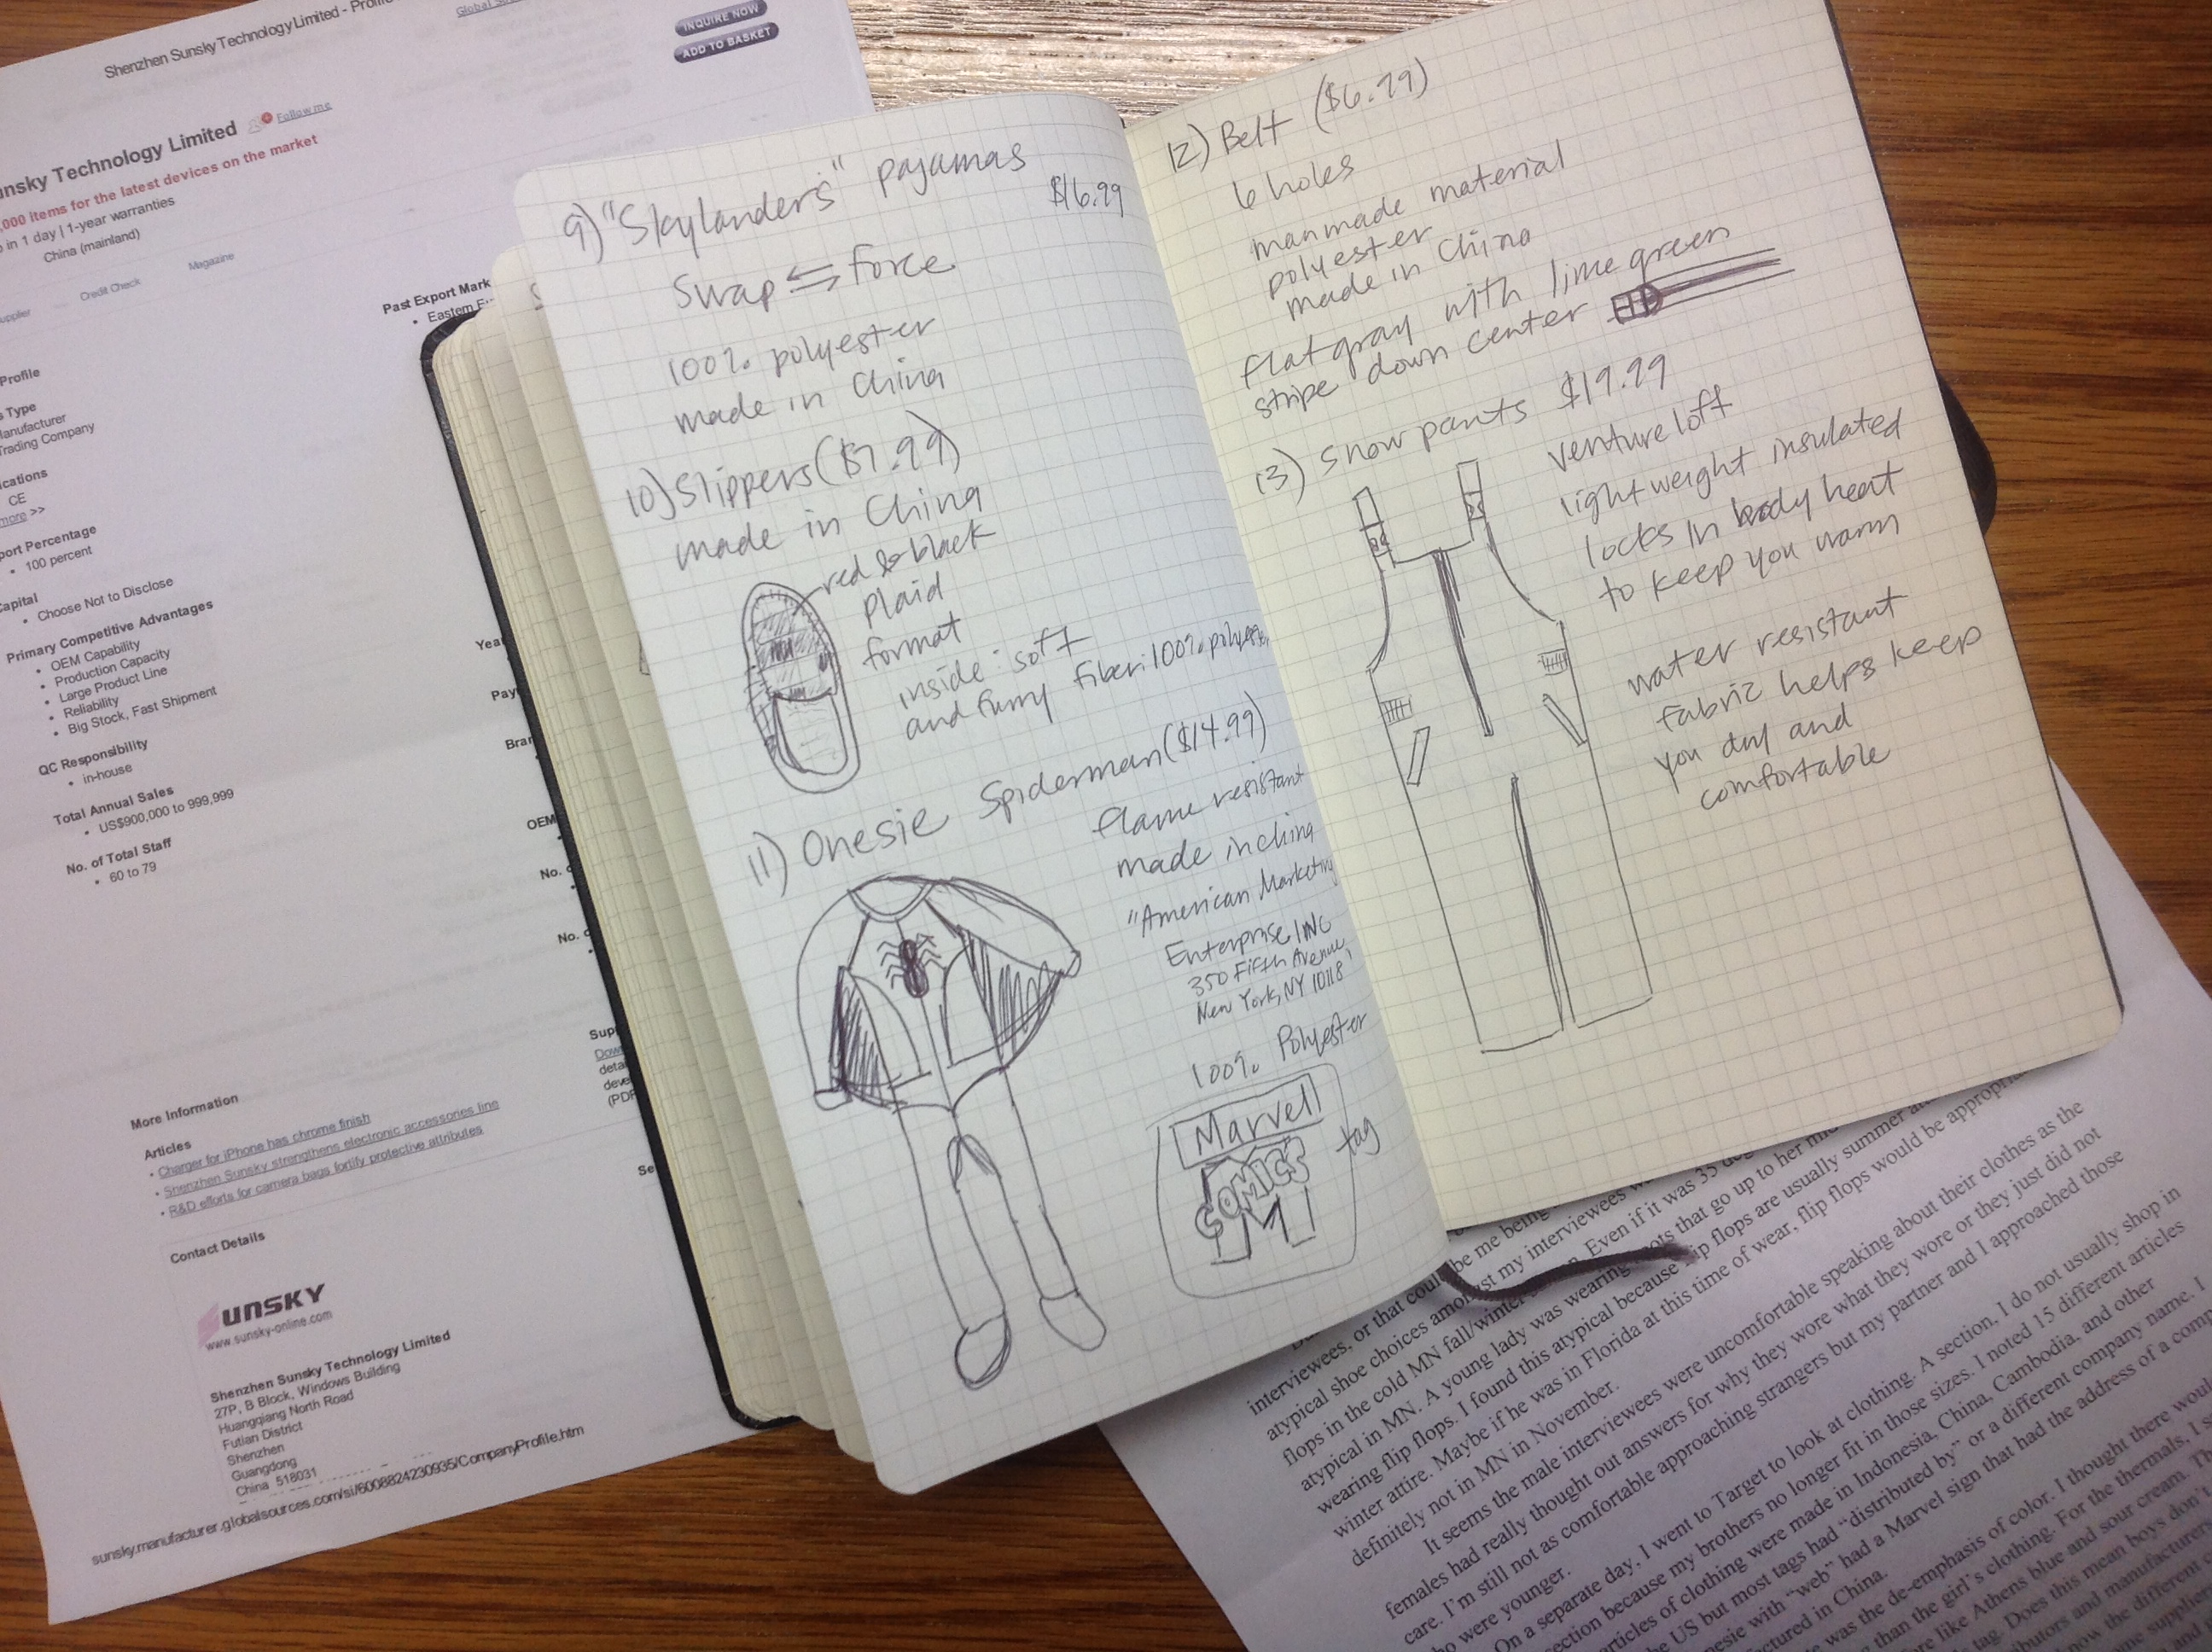 Shenzhen Sunsky Technology Limited - Profile
INQUIRE NOW
ADD TO BASKET
unsky Technology Limited
Follow me
,000 items for the latest devices on the market
in 1 day | 1-year warranties
China (mainland)
Credit Check
Magazine
Past Export Mark
• Eastern Eu
Profile
s Type
Manufacturer
Trading Company
ications
CE
more >>
port Percentage
• 100 percent
Capital
• Choose Not to Disclose
Primary Competitive Advantages
• OEM Capability
• Production Capacity
• Large Product Line
• Reliability
• Big Stock, Fast Shipment
QC Responsibility
• in-house
Total Annual Sales
• US$900,000 to 999,999
No. of Total Staff
• 60 to 79
Year
Pay
Bran
OEM
No. o
No. o
Sup
Dow
detai
deve
(PDF
Se
More Information
Articles
• Charger for iPhone has chrome finish
• Shenzhen Sunsky strengthens electronic accessories line
• R&D efforts for camera bags fortify protective attributes
Contact Details
SUNSKY
www.sunsky-online.com
Shenzhen Sunsky Technology Limited
27P, B Block, Windows Building
Huangqiang North Road
Futian District
Shenzhen
Guangdong
China 518031
sunsky.manufacturer.globalsources.com/si/6008824230935/CompanyProfile.htm
9) "Skylanders" pajamas
$16.99
Swap ⇆ Force
100% polyester
made in China
10) Slippers ($7.99)
made in China
red & black
plaid
format
inside: soft
and furry fiber: 100% polyester
11) Onesie Spiderman ($14.99)
flame resistant
made in China
"American Marketing
Enterprise INC
350 Fifth Avenue,
New York, NY 10118
100% Polyester
Marvell
COMICS
M
tag
12) Belt ($6.99)
6 holes
manmade material
polyester
made in China
flat gray with lime green
stripe down center
13) Snow pants $19.99
venture loft
lightweight insulated
locks in body heat
to keep you warm
water resistant
fabric helps keep
you dry and
comfortable
interviewees, or that could be me being
atypical shoe choices amongst my interviewees w
flops in the cold MN fall/winter Even if it was 35 deg
atypical in MN. A young lady was wearing that go up to her
wearing flip flops. I found this atypical because flip flops are usually summer
winter attire. Maybe if he was in Florida at this time of wear, flip flops would be appropri
definitely not in MN in November.
It seems the male interviewees were uncomfortable speaking about their clothes as the
females had really thought out answers for why they wore what they wore or they just did not
care. I'm still not as comfortable approaching strangers but my partner and I approached those
who were younger.
On a separate day, I went to Target to look at clothing. A section, I do not usually shop in
section because my brothers no longer fit in those sizes. I noted 15 different articles
articles of clothing were made in Indonesia, China, Cambodia, and other
the US but most tags had "distributed by" or a different company name. I
nesie with "web" had a Marvel sign that had the address of a comp
factured in China.
was the de-emphasis of color. I thought there would
than the girl's clothing. For the thermals, I s
re like Athens blue and sour cream. Th
tag. Does this mean boys don't
utors and manufacturer
the different
supplie